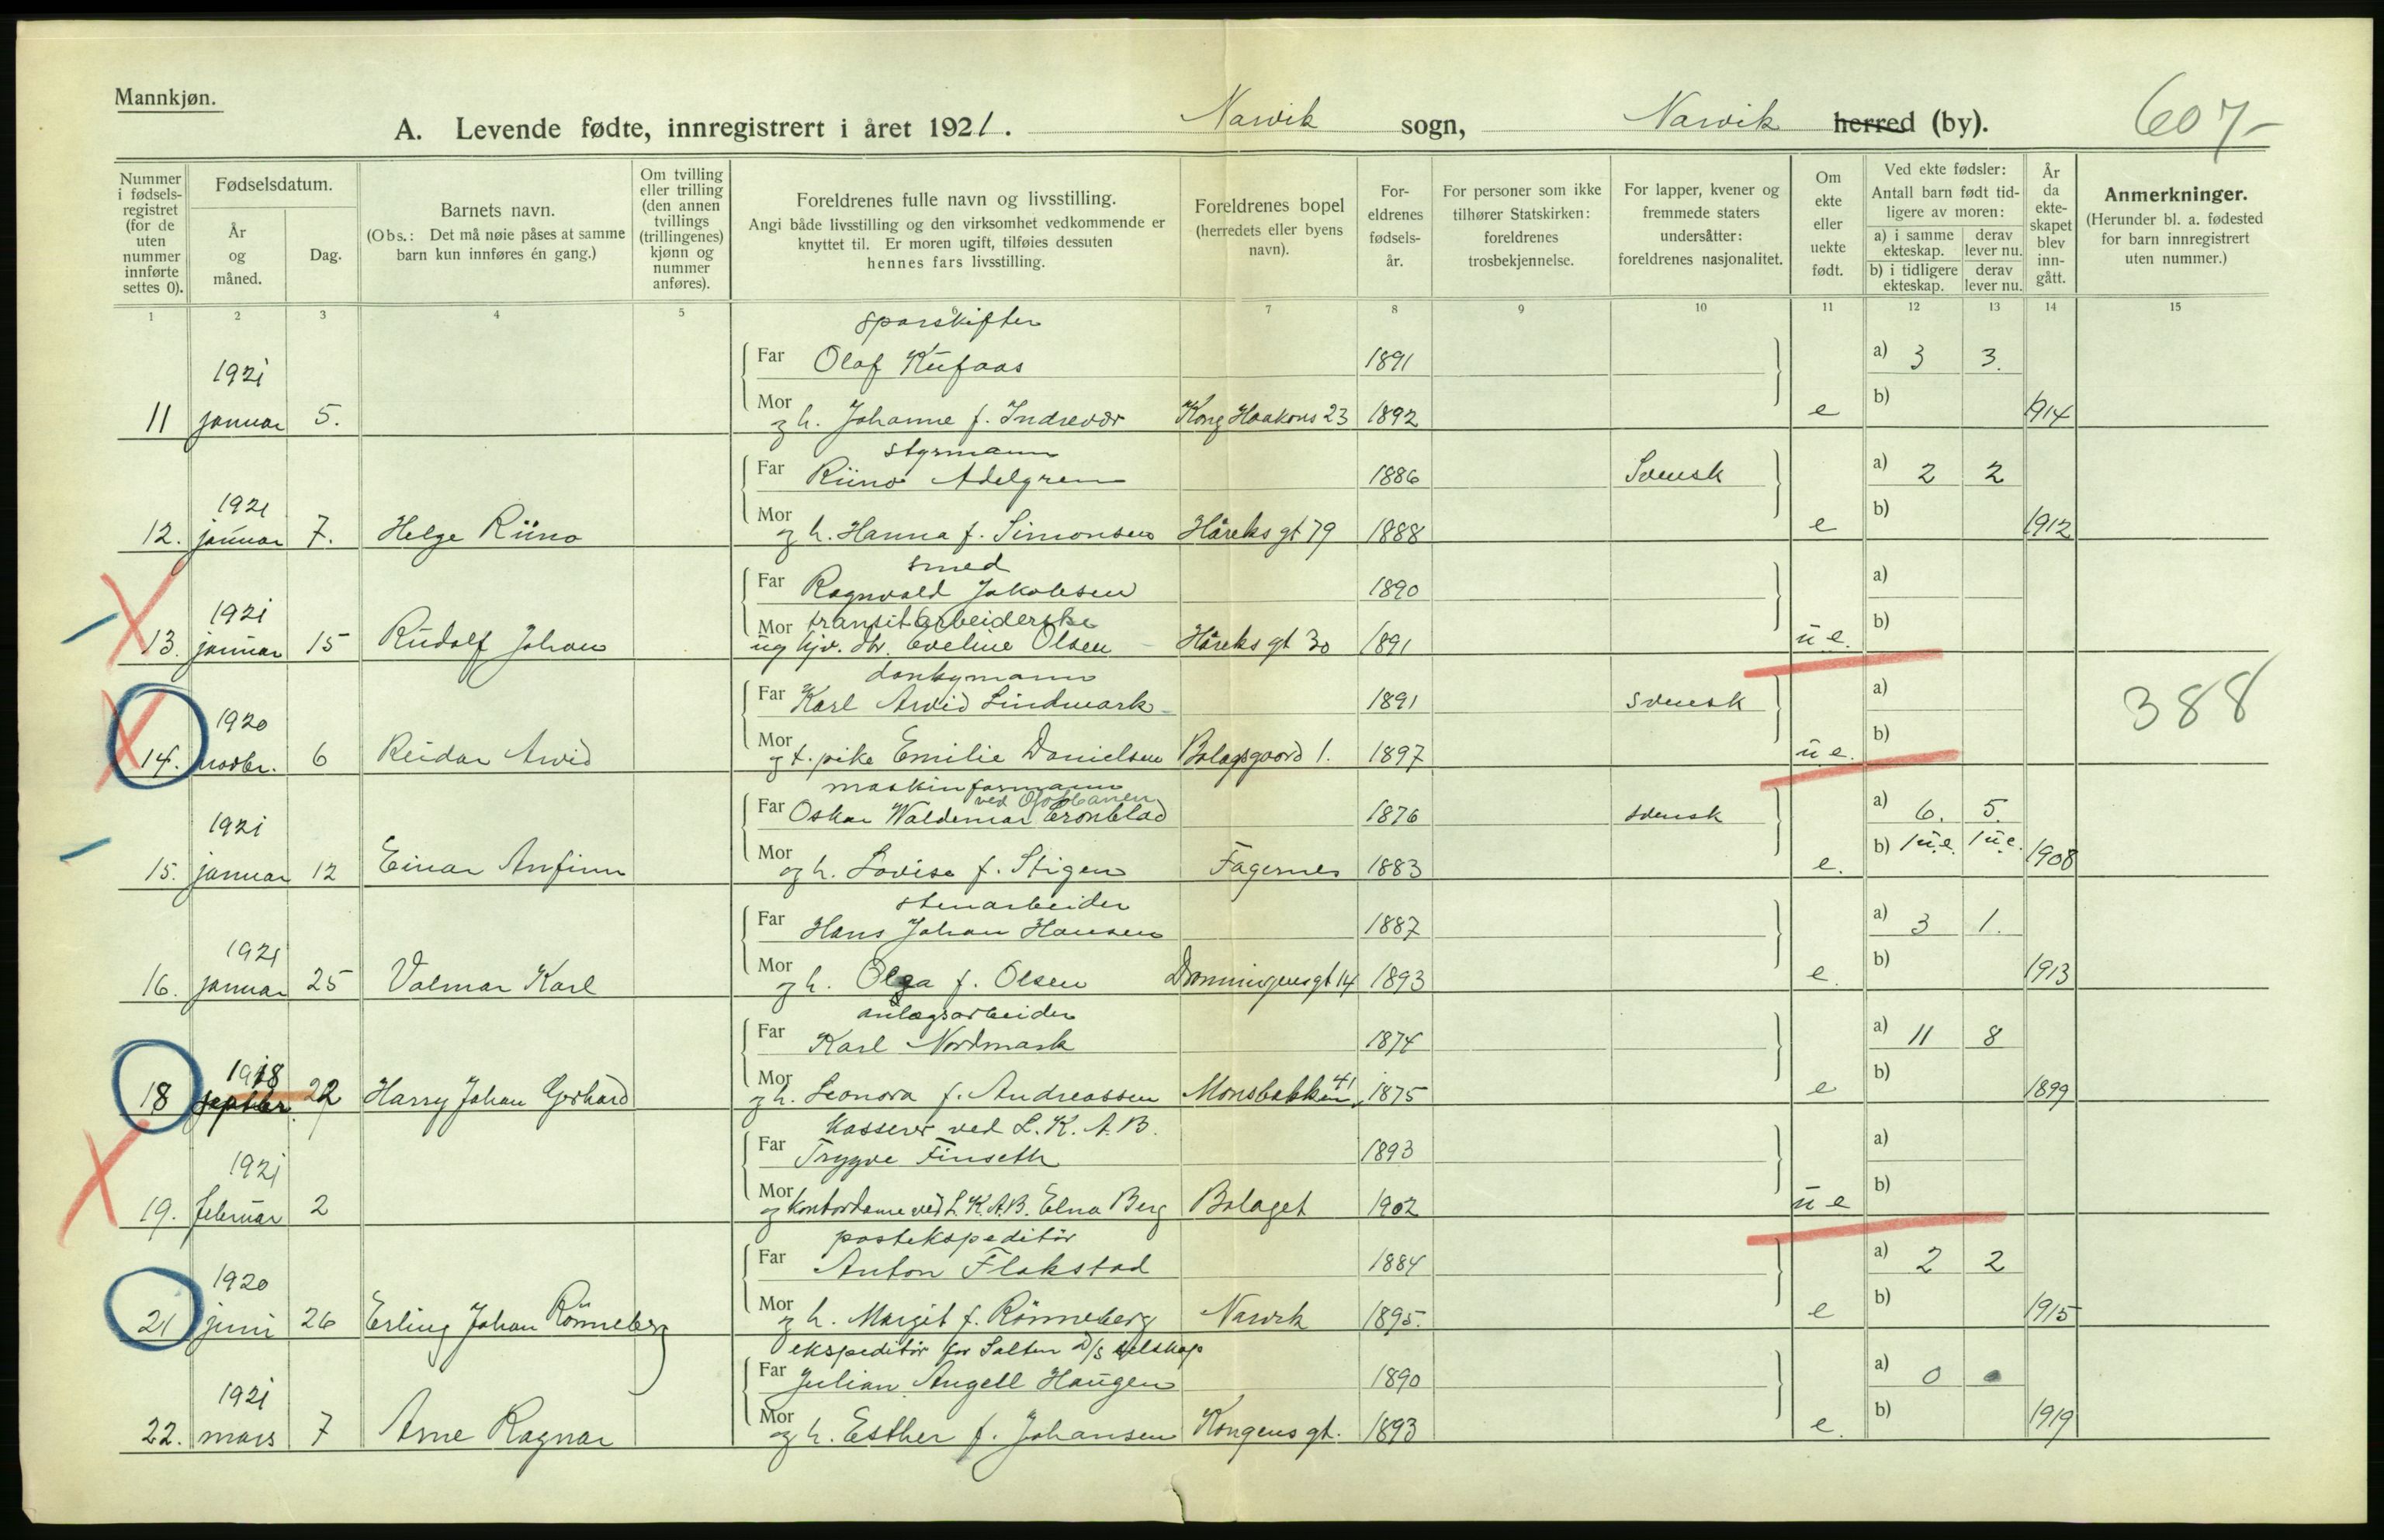 Mannkjøn.
A. Levende fødte, innregistrert i året 1921. Narvik sogn, Narvik herred (by). 607-
Nummer i fødsels-registret (for de uten nummer innførte settes 0).
Fødselsdatum.
År og måned.
Dag.
Barnets navn.
(Obs.: Det må nøie påses at samme barn kun innføres én gang.)
Om tvilling eller trilling (den annen tvillings (trillingenes) kjønn og nummer anføres).
Foreldrenes fulle navn og livsstilling.
Angi både livsstilling og den virksomhet vedkommende er knyttet til. Er moren ugift, tilføies dessuten hennes fars livsstilling.
Foreldrenes bopel (herredets eller byens navn).
For-eldrenes fødsels-år.
For personer som ikke tilhører Statskirken: foreldrenes trosbekjennelse.
For lapper, kvener og fremmede staters undersåtter: foreldrenes nasjonalitet.
Om ekte eller uekte født.
Ved ekte fødsler: Antall barn født tid-ligere av moren:
a) i samme ekteskap. derav lever nu.
b) i tidligere ekteskap. derav lever nu.
År da ekte-skapet blev inn-gått.
Anmerkninger.
(Herunder bl. a. fødested for barn innregistrert uten nummer.)
1 2 3 4 5 6 7 8 9 10 11 12 13 14 15
sporskifter
Far Olaf Kufaas 1891 a) 3 3.
1921
11 januar 5. Mor og h. Johanne f. Indrevær Kong Haakons 23 1892 e b) 1914
styrmann
Far Runo Adelgren 1886 Svensk a) 2 2
1921
12. januar 7. Helge Runo Mor og h. Hanna f. Simonsen Håreks gt 79 1888 e b) 1912
smed
Far Ragnvald Jakobsen 1890 a)
1921
transitarbeiderske
13. januar 15 Rudolf Johan Mor ug hjv. dtr. Eveline Olsen Håreks gt 30 1891 u e. b)
donkymann
Far Karl Arvid Lindmark 1891 svensk a)
1920 388
14. novbr. 6 Reidar Arvid Mor og t. pike Emilie Danielsen Bolagsgaard 1. 1897 u e. b)
maskinformann
ved Ofotbanen
Far Oskar Waldemar Cronblad 1876 svensk a) 6. 5.
1921
15. januar 12 Einar Anfinn Mor og h. Lovise f. Stigen Fagernes 1883 e. b) 1 u.e. 1 u.e. 1908
stenarbeider
Far Hans Johan Hansen 1887 a) 3 1.
1921
16. januar 25 Valmar Karl Mor og h. Olga f. Olsen Dronningens gt 14 1893 e. b) 1913
anlægsarbeider
Far Karl Nordmark 1874 a) 11 8
1918
18 septbr. 22 Harry Johan Gerhard Mor og h. Leonora f. Andreassen Monsbakken 41 1875 e b) 1899
kasserer ved L. K. A. B.
Far Trygve Finseth 1893 a)
1921
19. februar 2 Mor og kontordame ved L. K. A. B. Elna Berg Bolaget 1902 u e b)
postekspeditör
Far Anton Flakstad 1884 a) 2 2
1920
21 juni 26 Erling Johan Rönneberg Mor og h. Margit f. Rönneberg Narvik 1895. e b) 1915
ekspeditör for Salten D/S selskap
Far Julian Angell Haugen 1890 a) 0
1921
22. mars 7 Arne Ragnar Mor og h. Esther f. Johansen Kongens gt. 1893 e. b) 1919